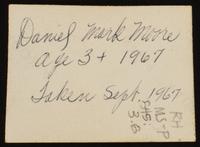 Daniel Mark Moore
age 3+ 1967
Taken Sept. 1967
RH
MS-P
SHS:
3.B